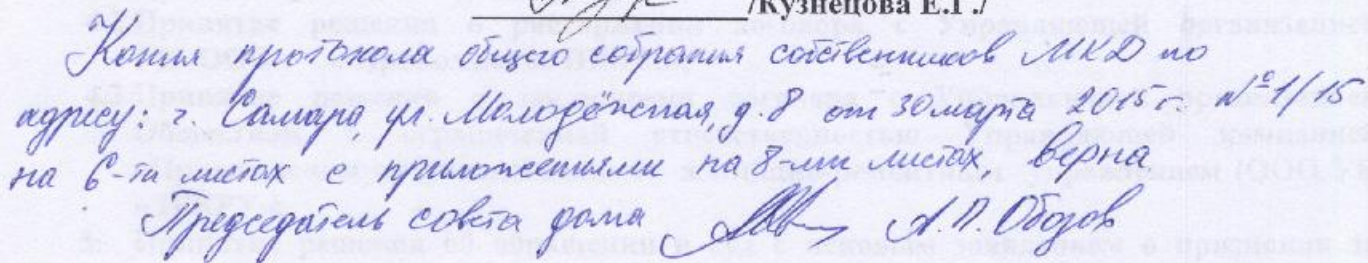 /Кузнецова Е.Г./
Копия протокола общего собрания собственников МКД по
адресу: г. Самара ул. Молодёжная, д. 8 от 30 марта 2015 г. № 1/15
на 6-ти листах с приложениями на 8-ми листах верна
Председатель совета дома А.П. Обозов